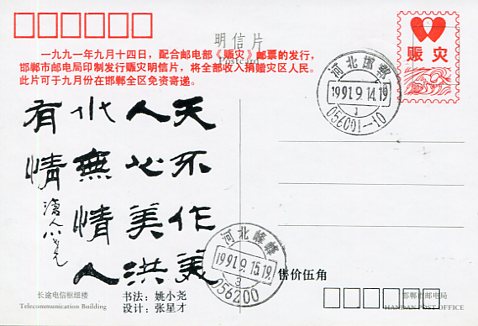 明信片
Postcard
一九九一年九月十四日，配合邮电部《赈灾》邮票的发行，
邯郸市邮电局印制发行赈灾明信片，将全部收入捐赠灾区人民。
此片可于九月份在邯郸全区免资寄递。
赈灾
河北邯郸
1991.9.14.19
1
056001-10
天不作美
人心美洪
水無情人
有情
河北峰峰
1991.9.15.19
056200
售价伍角
长途电信枢纽楼
Telecommunication Building
书法：姚小尧
设计：张星才
邯郸市邮电局
HANDAN POST OFFICE